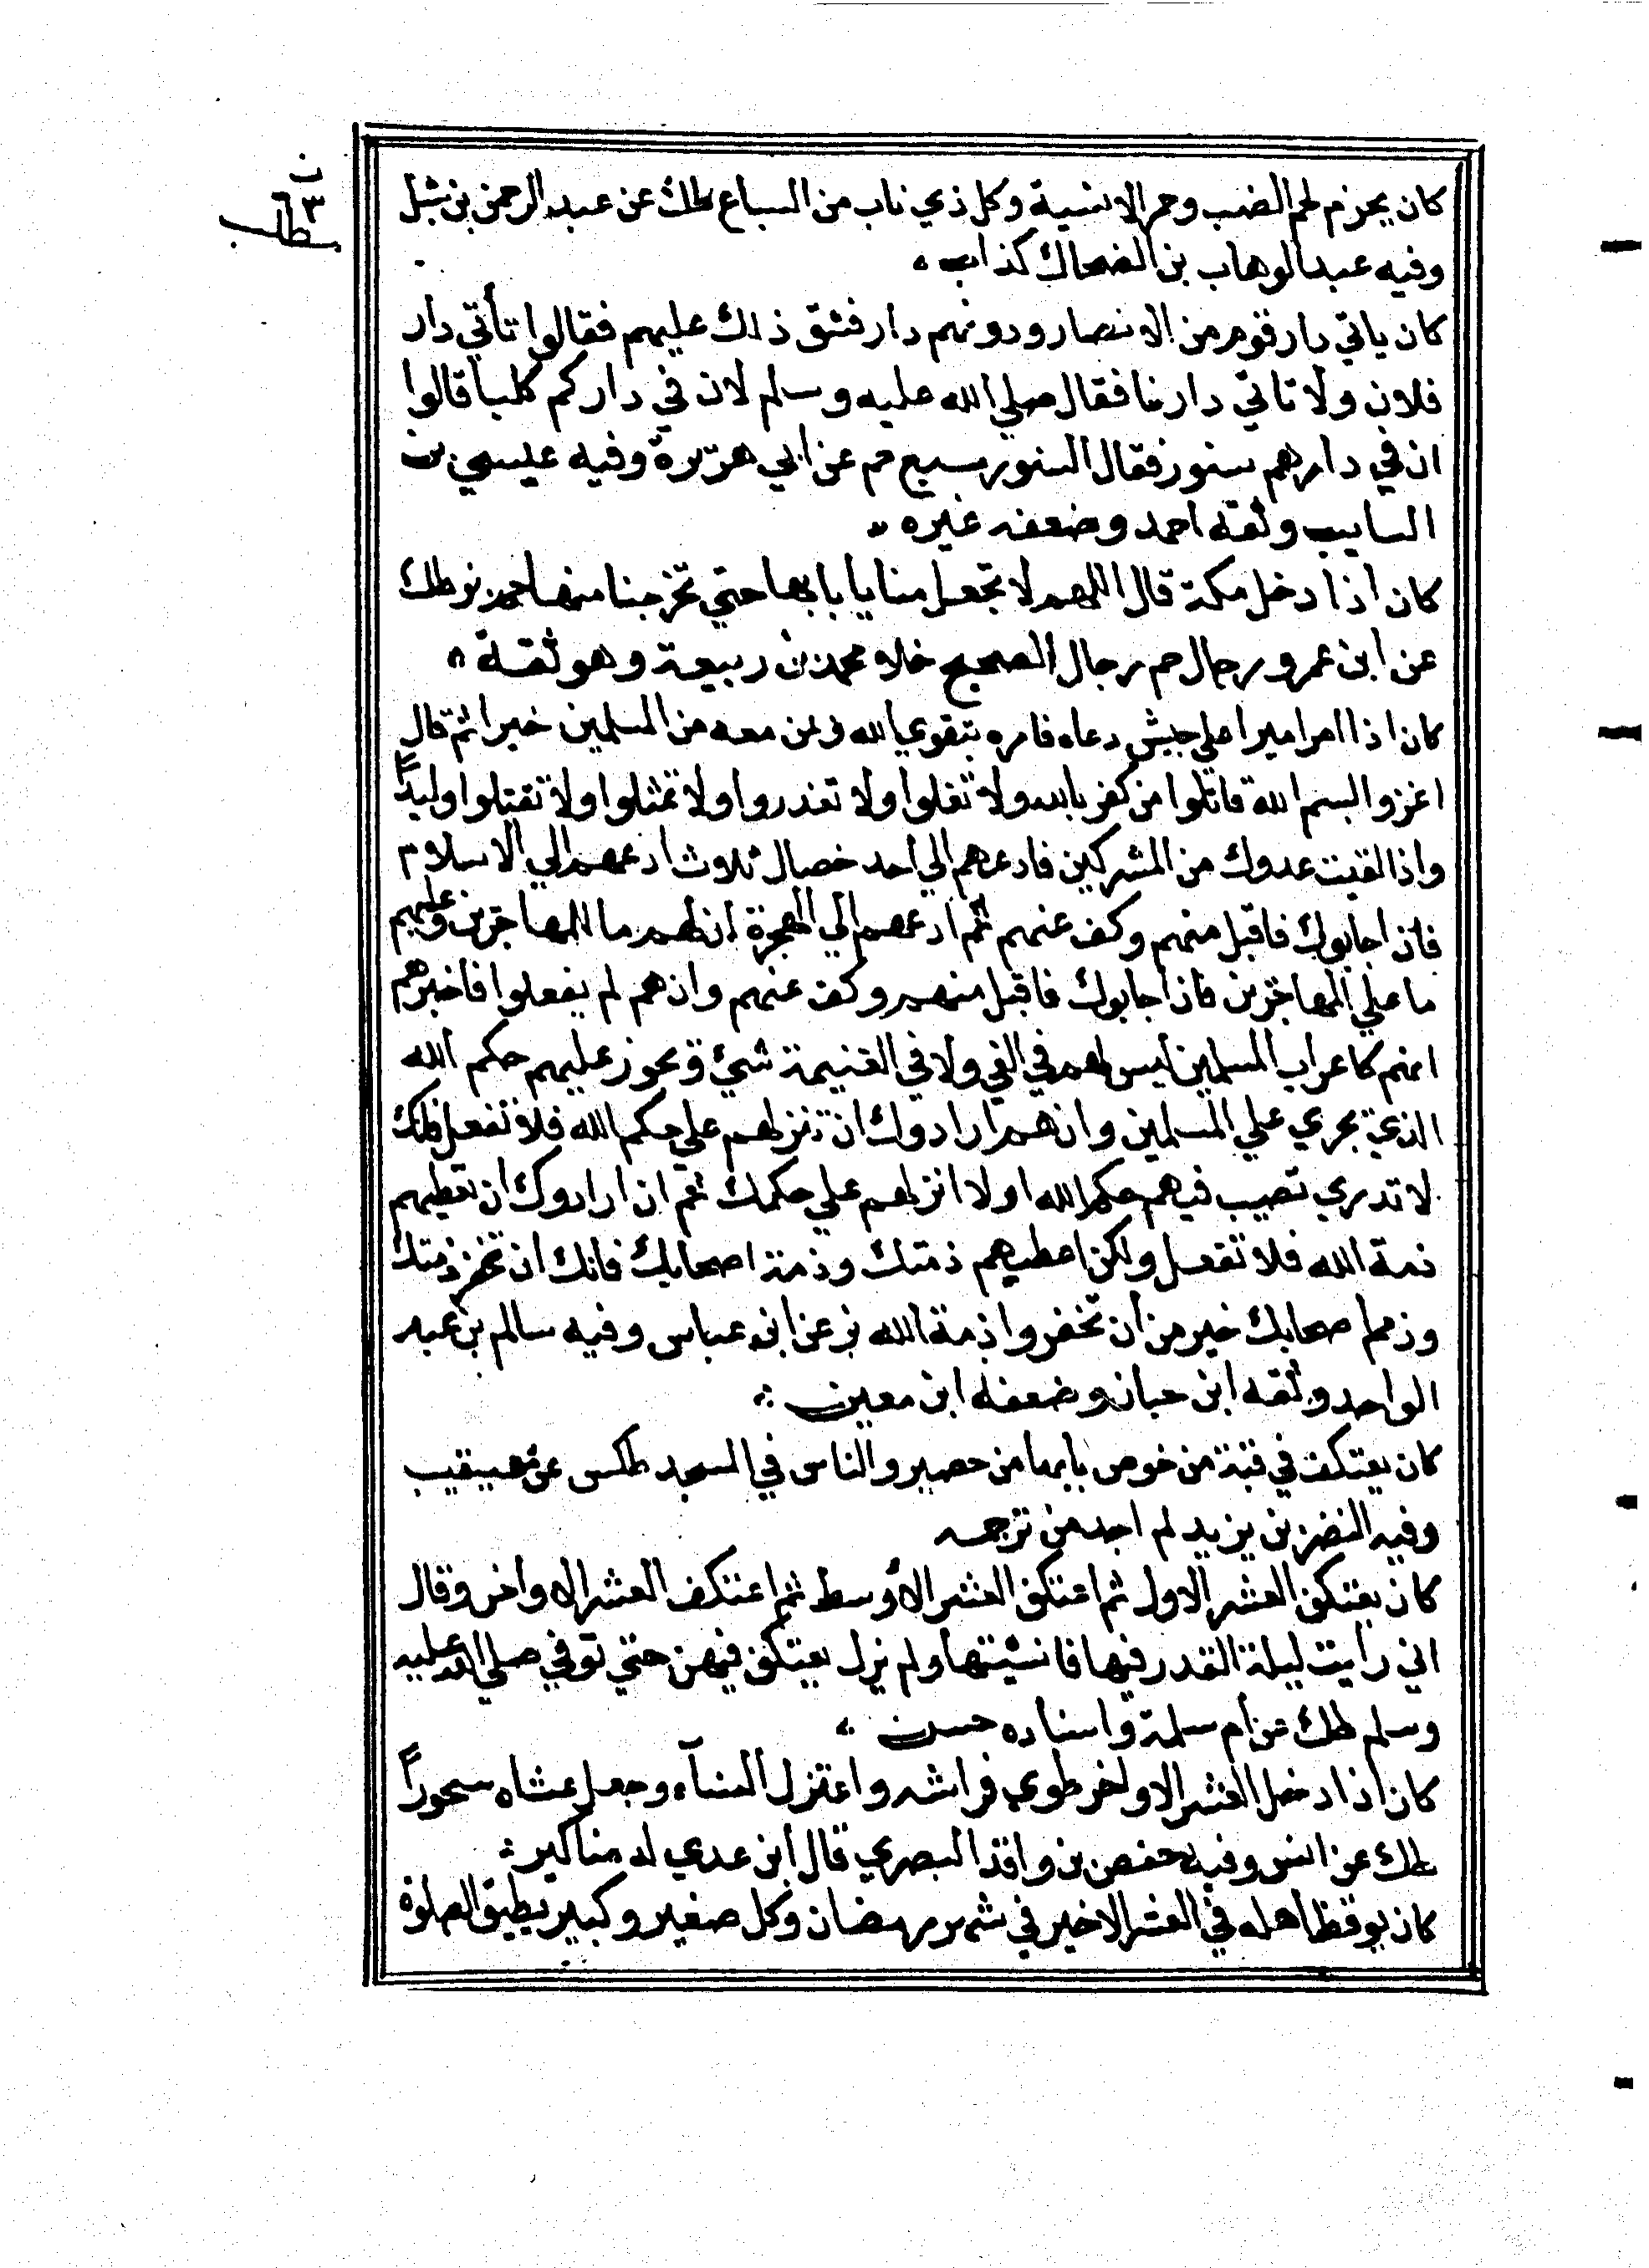 كان يحرم لحم الضب وحمر الانسية وكل ذي ناب من السباع طك عن عبد الرحمن بن شبل
وفيه عبد الوهاب بن الضحاك كذاب
كان ياتي دار قوم من الانصار ودونهم دار فشق ذلك عليهم فقالوا تأتي دار
فلان ولا تاتي دارنا فقال صلي الله عليه وسلم لان في داركم كلبا قالوا
ان في دارهم سنور فقال السنور سبع حم عن ابي هريرة وفيه عيسي بن
السايب وثقه احمد وضعفه غيره
كان اذا دخل مكة قال اللهم لا تجعل منايا بابها حتي تخرجنا منها حم بز طك
عن ابن عمر ورجال حم رجال الصحيح خلا محمد بن ربيعة وهو ثقة
كان اذا امر اميرا علي جيش دعاه فامره بتقوي الله وبمن معه من المسلمين خيرا ثم قال
اغزوا بسم الله قاتلوا من كفر بالله ولا تغلوا ولا تغدروا ولا تمثلوا ولا تقتلوا وليدًا
واذا لقيت عدوك من المشركين فادعهم الي احد خصال ثلاث ادعهم الي الاسلام
فان اجابوك فاقبل منهم وكف عنهم ثم ادعهم الي الهجرة ان لهم ما للمهاجرين وعليهم
ما علي المهاجرين فان اجابوك فاقبل منهم وكف عنهم وان هم لم يفعلوا فاخبرهم
انهم كاعراب المسلمين ليس لهم في الفي ولا في الغنيمة شيء ويجوز عليهم حكم الله
الذي يجري علي المسلمين وان هم ارادوك ان تنزلهم علي حكم الله فلا تفعل فانك
لا تدري تصيب فيهم حكم الله او لا انزلهم علي حكمك ثم ان ارادوك ان تعطيهم
ذمة الله فلا تفعل ولكن اعطيهم ذمتك وذمة اصحابك فانك ان تخفر ذمتك
وذمم اصحابك خير من أن تخفروا ذمة الله بز عن ابن عباس وفيه سالم بن عبد
الواحد وثقه ابن حبان وضعفه ابن معين
كان يعتكف في قبة من خوص بابها من حصير والناس في المسجد طكس عن معيقيب
وفيه النضر بن يزيد لم اجد من ترجمه
كان يعتكف العشر الاول ثم اعتكف العشر الأوسط ثم اعتكف العشر الاواخر وقال
اني رايت ليلة القدر فيها فانسيتها ولم يزل يعتكف فيهن حتي توفي صلي الله عليه
وسلم طك عن أم سلمة واسناده حسن
كان اذا دخل العشر الاواخر طوي فراشه واعتزل النسآء وجعل عشاه سحورًا
طك عن انس وفيه حفص بن واقد البصري قال ابن عدي له مناكير
كان يوقظ اهله في العشر الاخير في شهر رمضان وكل صغير وكبير يطيق الصلوة